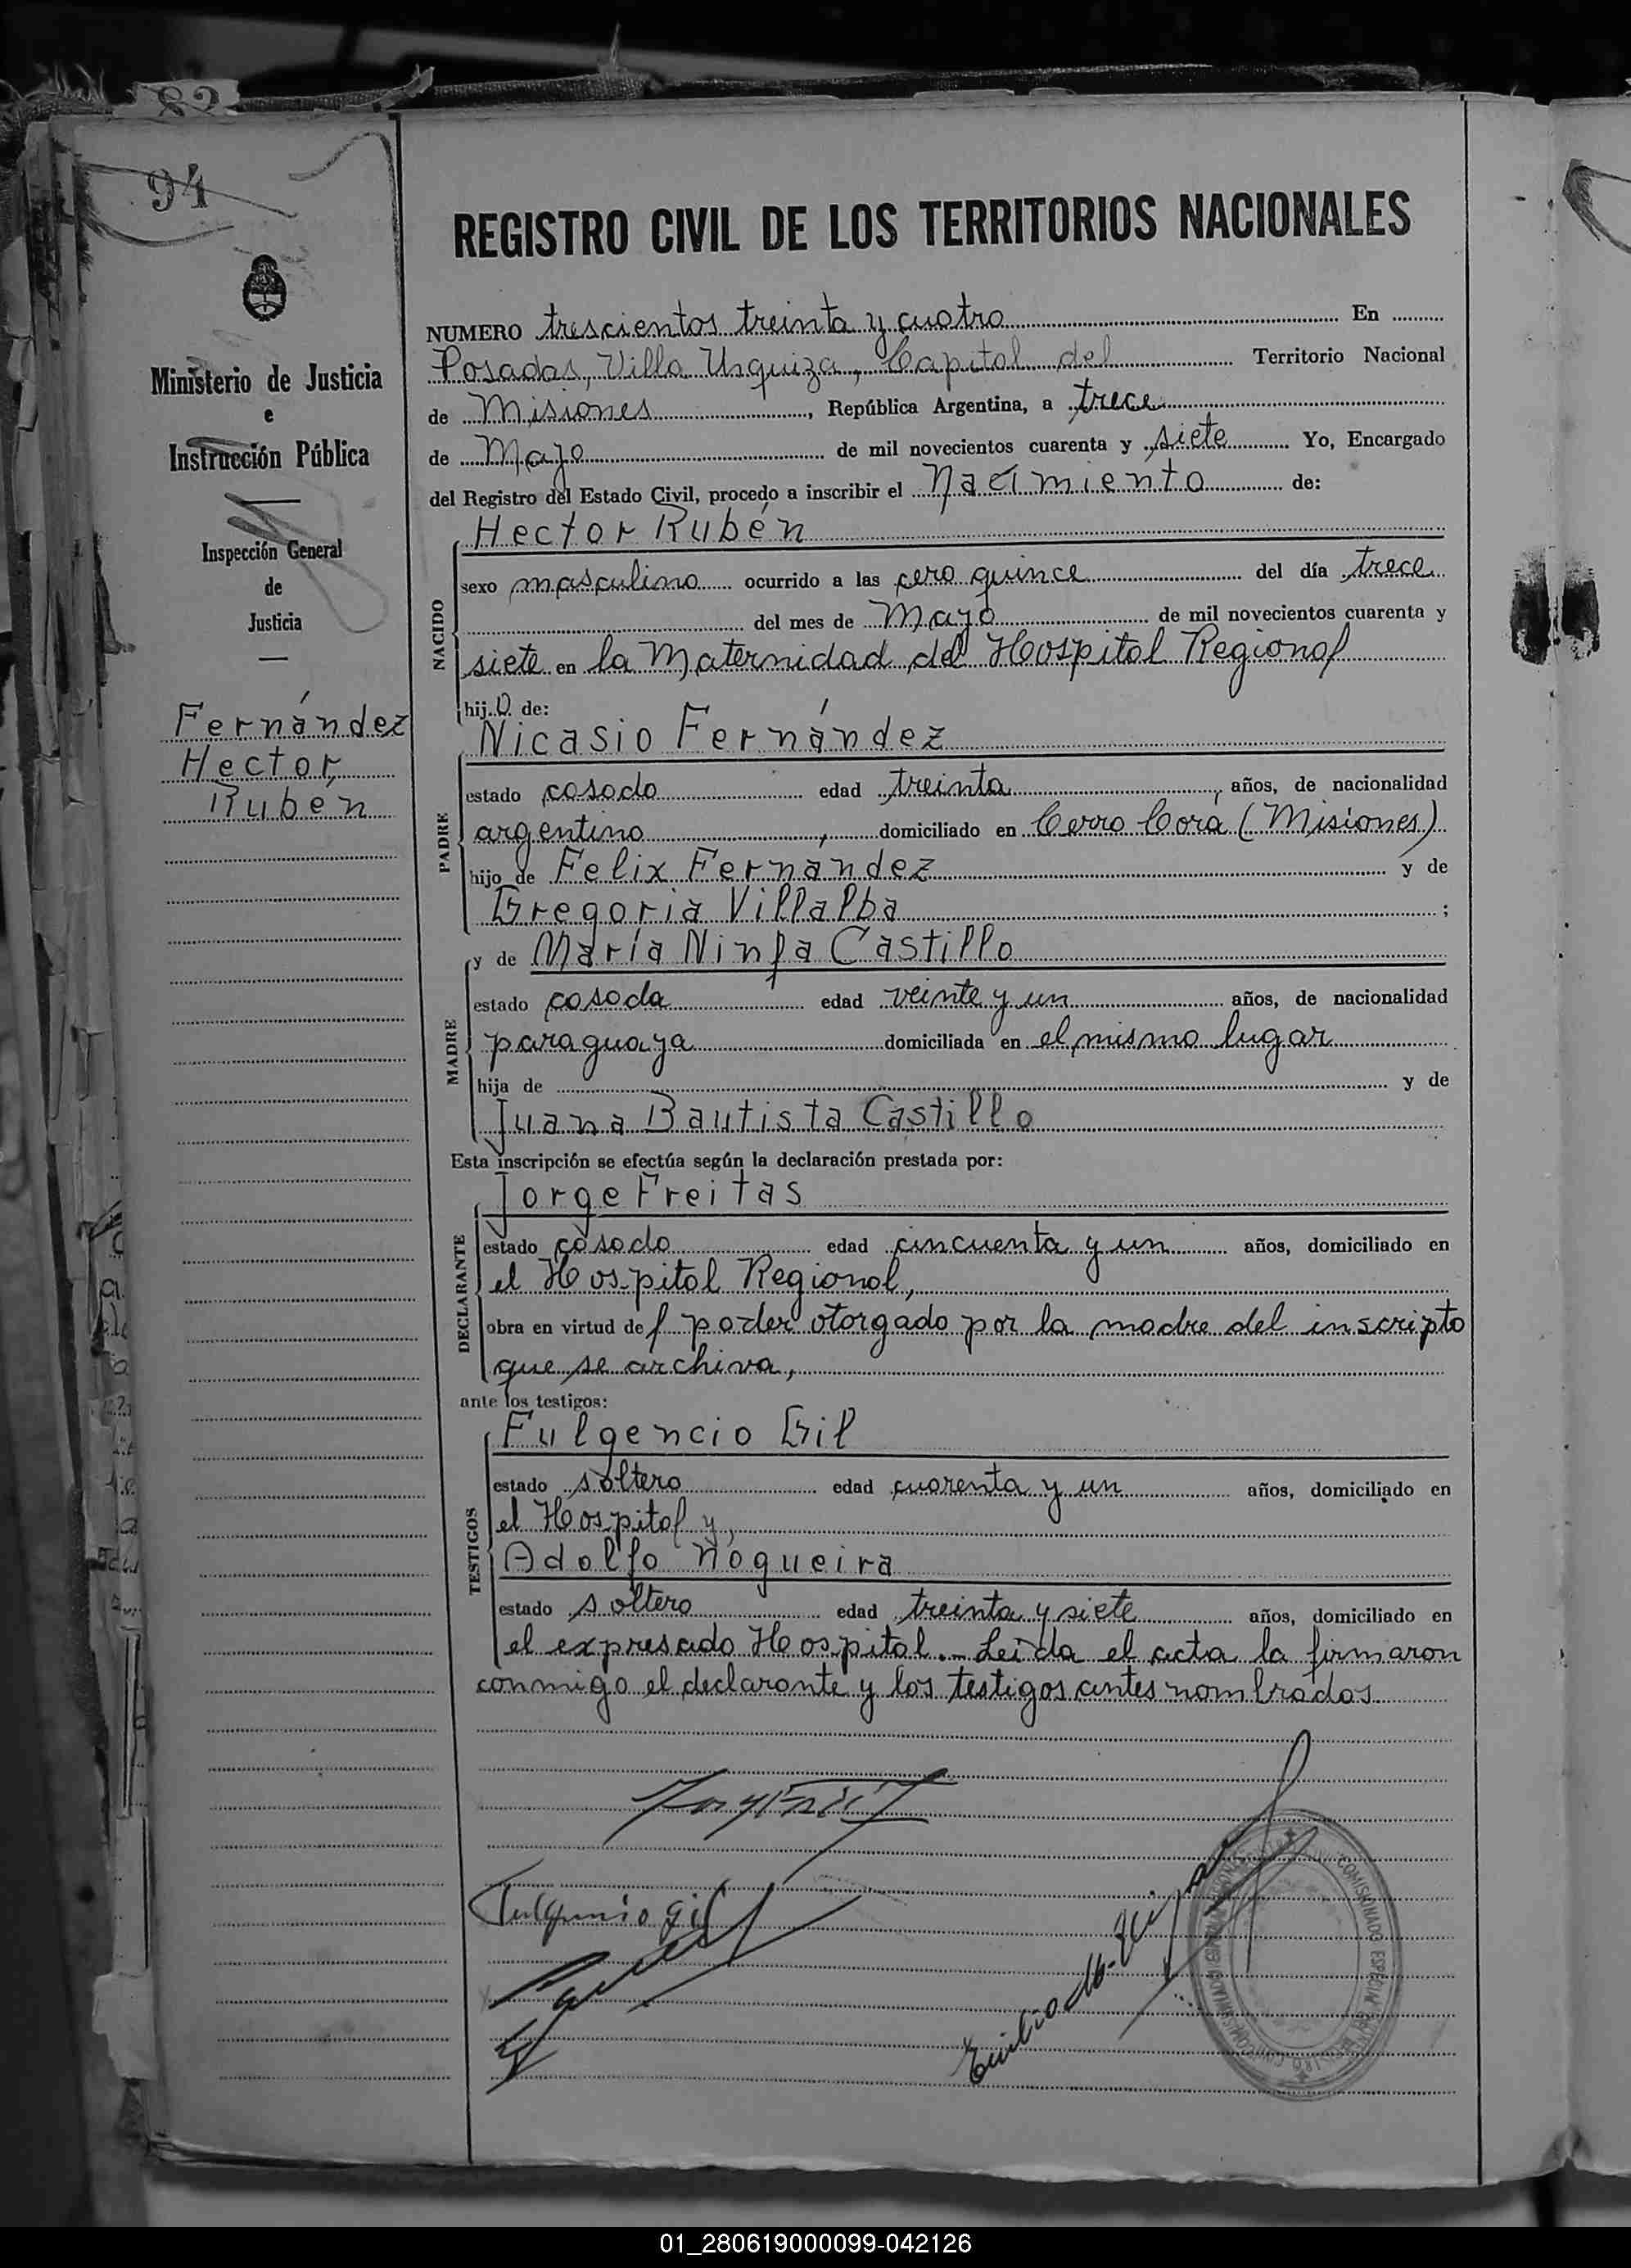 82
94
Ministerio de Justicia
e
Instrucción Pública
Inspección General
de
Justicia
Fernández
Hector
Rubén
REGISTRO CIVIL DE LOS TERRITORIOS NACIONALES
NUMERO trescientos treinta y cuatro En
Posadas, Villa Urquiza, Capital del Territorio Nacional
de Misiones, República Argentina, a trece
de Mayo de mil novecientos cuarenta y siete Yo, Encargado
del Registro del Estado Civil, procedo a inscribir el Nacimiento de:
NACIDO
Hector Rubén
sexo masculino ocurrido a las cero quince del día trece
del mes de Mayo de mil novecientos cuarenta y
siete en la Maternidad del Hospital Regional
hijo de:
PADRE
Nicasio Fernández
estado casado edad treinta, años, de nacionalidad
argentino, domiciliado en Cerro Corá (Misiones)
hijo de Felix Fernández y de
Gregoria Villalba ;
MADRE
y de María Ninfa Castillo
estado casada edad veinte y un años, de nacionalidad
paraguaya domiciliada en el mismo lugar
hija de y de
Juana Bautista Castillo
Esta inscripción se efectúa según la declaración prestada por:
DECLARANTE
Jorge Freitas
estado casado edad cincuenta y un años, domiciliado en
el Hospital Regional,
obra en virtud de poder otorgado por la madre del inscripto
que se archiva,
ante los testigos:
TESTIGOS
Fulgencio Gil
estado soltero edad cuarenta y un años, domiciliado en
el Hospital y,
Adolfo Nogueira
estado soltero edad treinta y siete años, domiciliado en
el expresado Hospital.- Leída el acta la firmaron
conmigo el declarante y los testigos antes nombrados
Fulgencio Gil
Emilio
COMISIONADO ESPECIAL
01_280619000099-042126